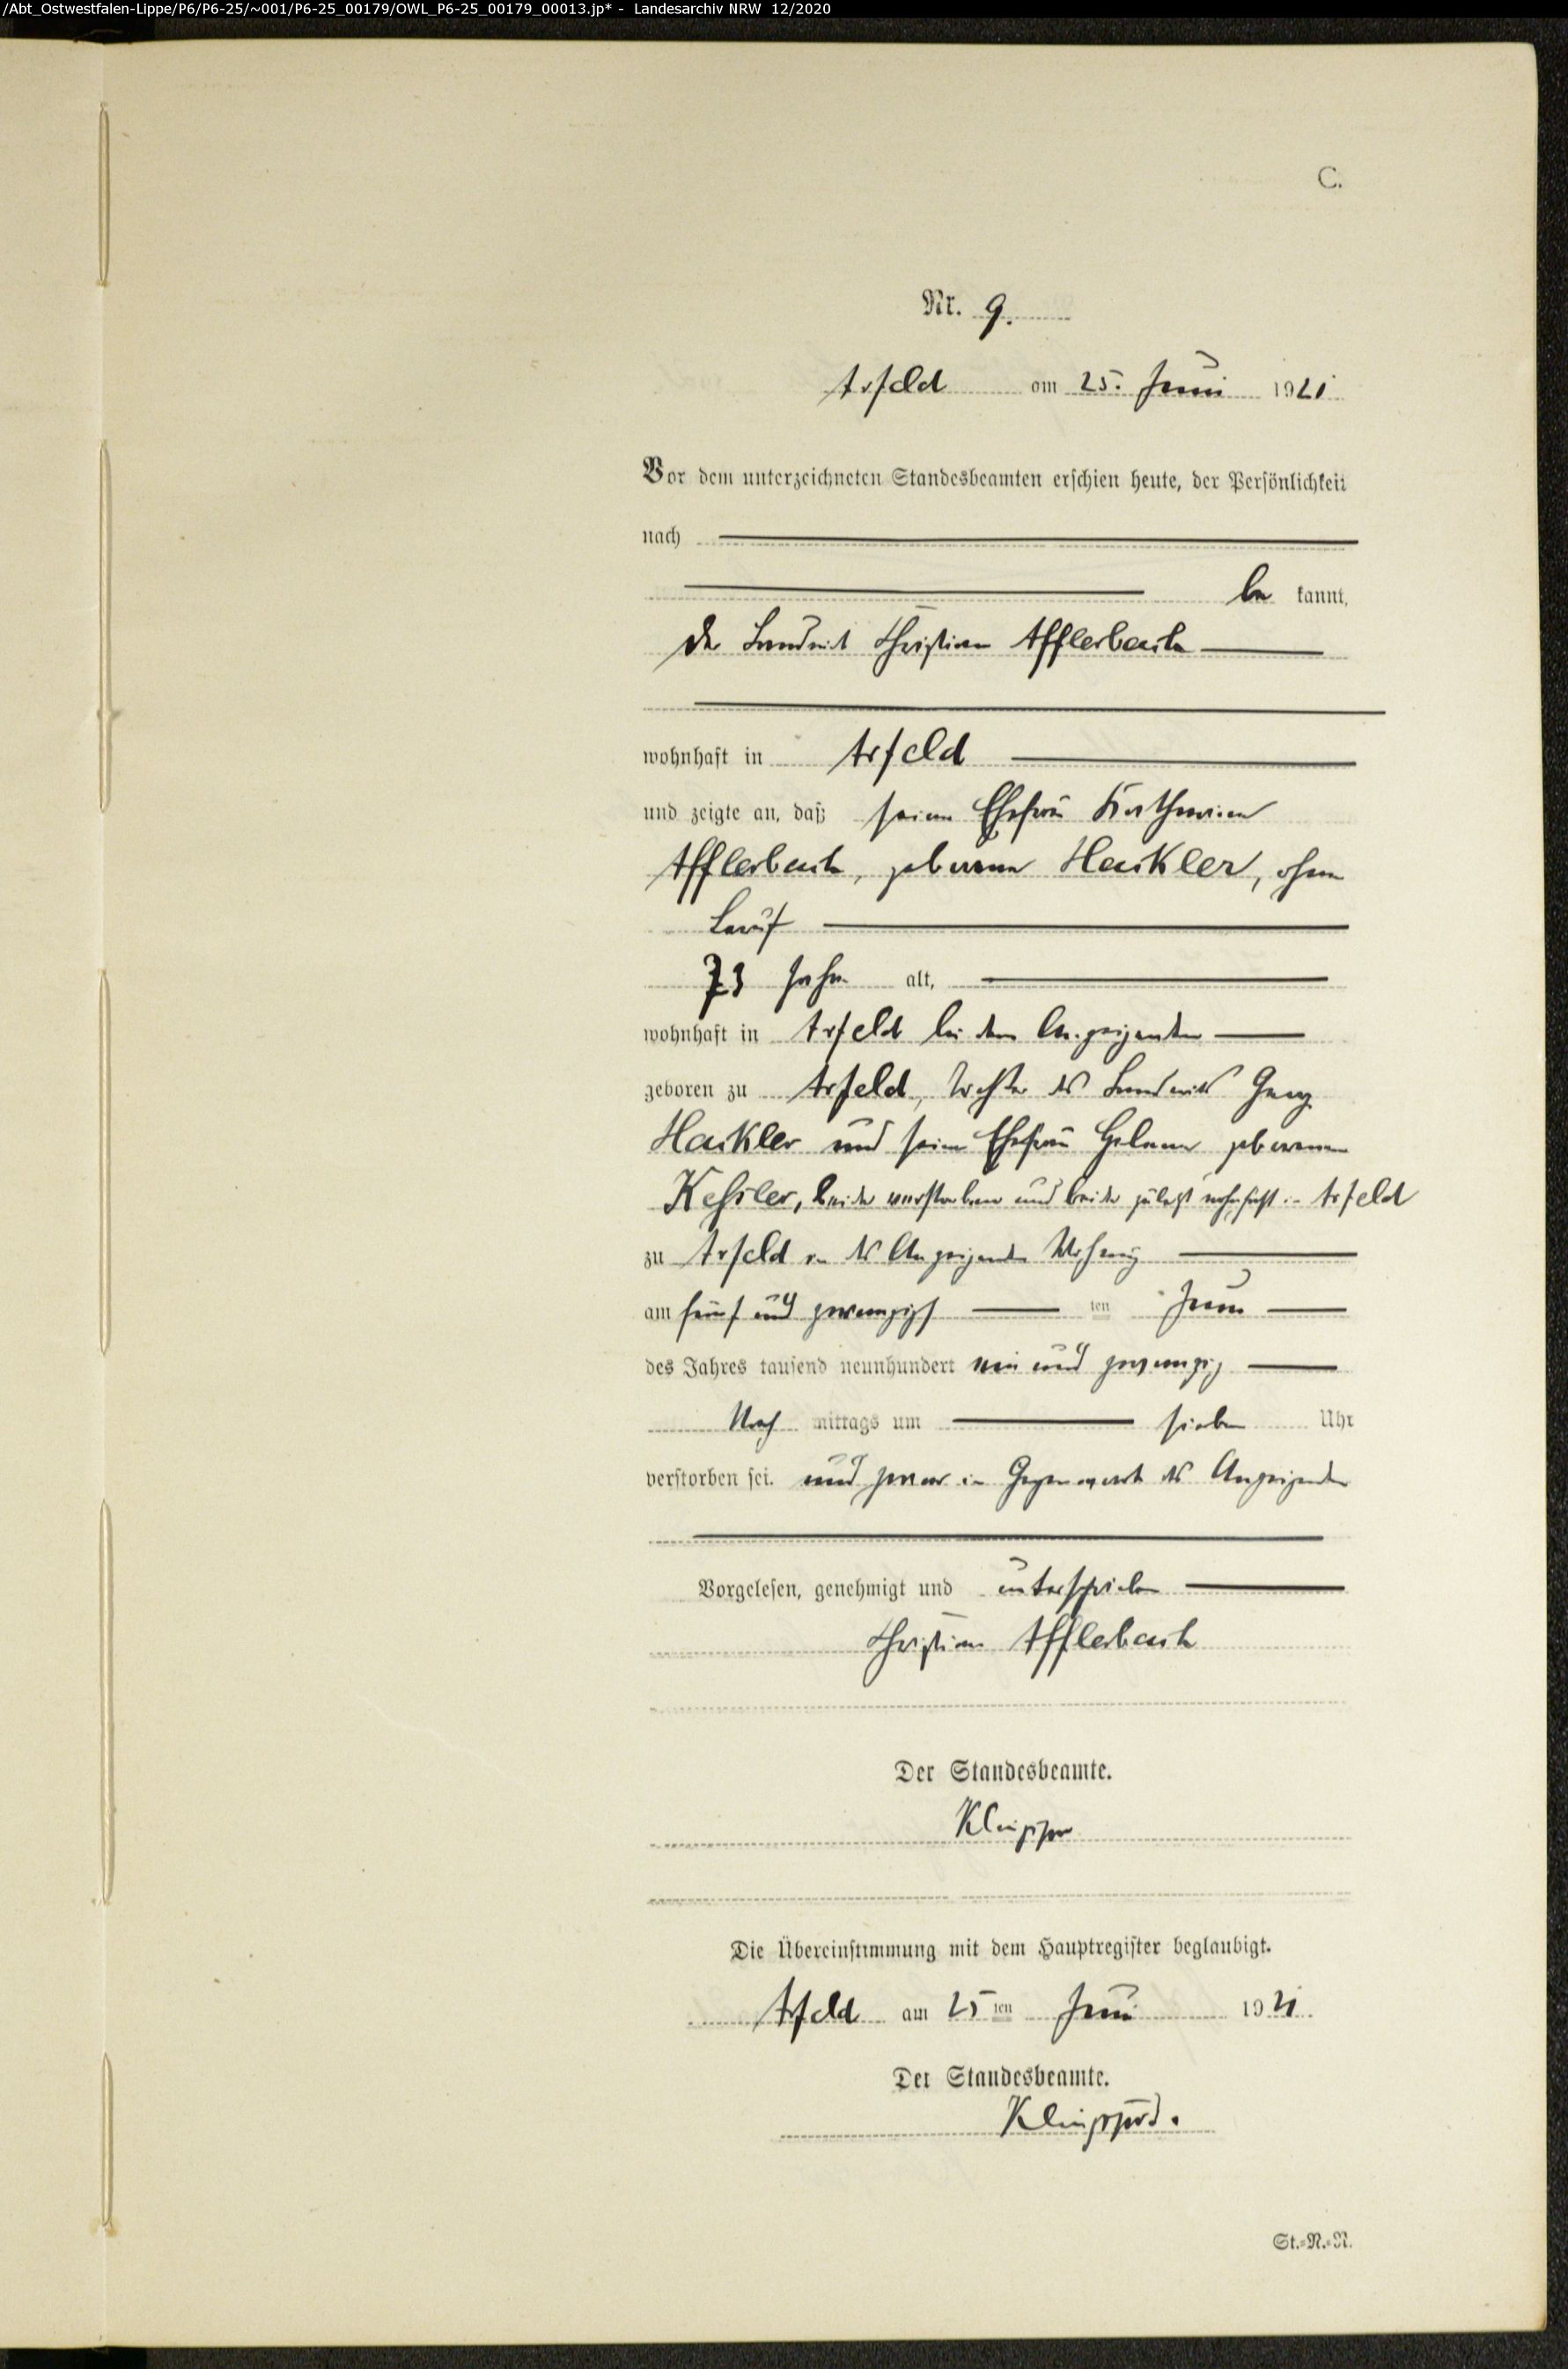 /Abt_Ostwestfalen-Lippe/P6/P6-25/~001/P6-25_00179/OWL_P6-25_00179_00013.jp* - Landesarchiv NRW 12/2020
C.
Nr. 9.
Arfeld am 25. Juni 1921
Vor dem unterzeichneten Standesbeamten erschien heute, der Persönlichkeit
nach
be kannt,
der Landwirt Christian Afflerbach
wohnhaft in Arfeld
und zeigte an, daß seine Ehefrau Katharine
Afflerbach, geborene Hackler, ohne
Beruf
73 Jahre alt,
wohnhaft in Arfeld bei dem Anzeigenden
geboren zu Arfeld, Tochter des Landwirts Georg
Hackler und seiner Ehefrau Helene geborenen
Keßler, beide verstorben und beide zuletzt wohnhaft in Arfeld
zu Arfeld in des Anzeigenden Wohnung
am fünf und zwanzigsten Juni
des Jahres tausend neunhundert ein und zwanzig
Nach mittags um sieben Uhr
verstorben sei. und zwar in Gegenwart des Anzeigenden
Vorgelesen, genehmigt und unterschrieben
Christian Afflerbach
Der Standesbeamte.
Die Übereinstimmung mit dem Hauptregister beglaubigt.
Arfeld am 25ten Juni 1921.
Der Standesbeamte.
St.-N.-N.